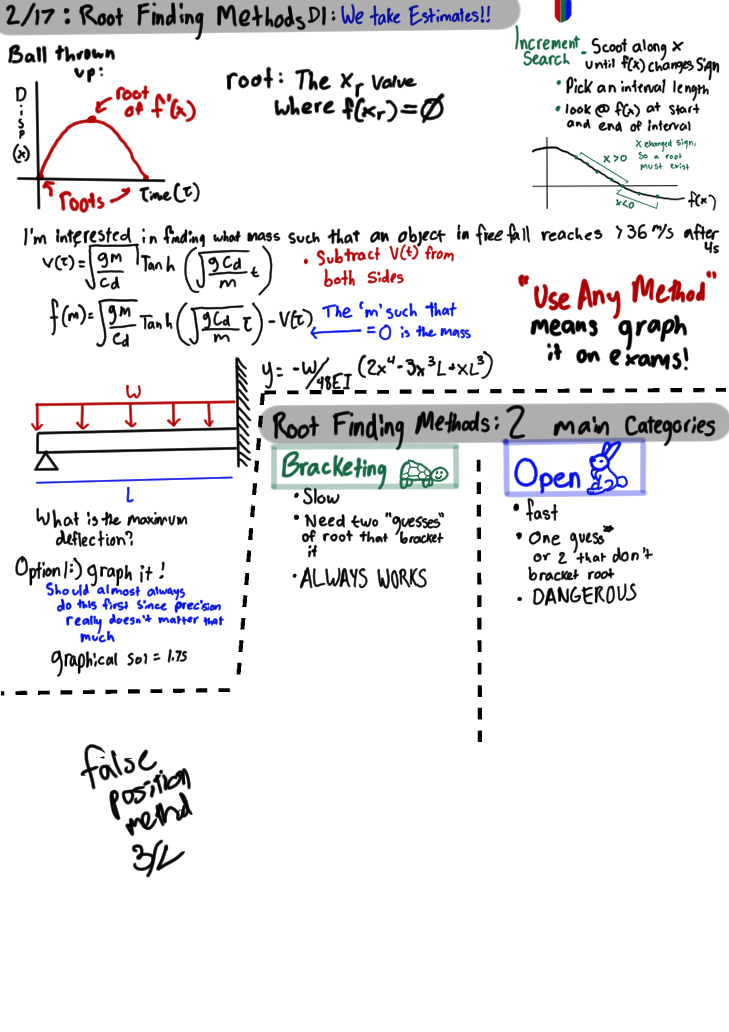 2/17: Root Finding Methods D1: We take Estimates!!
Ball thrown
up:
Disp (x)
root
of f'(x)
roots
Time(τ)
root: The Xr value
where f(xr)=∅
Increment
Search
- Scoot along x
until f(x) changes sign
• Pick an interval length
• look @ f(x) at start
and end of interval
X changed sign,
So a root
must exist
x>0
x<0
f(x)
I'm interested in finding what mass such that an object in free fall reaches >36 m/s after
4s
V(τ)=√(gm/cd) Tanh (√(gCd/m) t)
• Subtract V(t) from
both sides
f(m)=√(gm/cd) Tanh (√(gCd/m) τ) - V(τ)
The 'm' such that
= 0 is the mass
"Use Any Method"
means graph
it on exams!
y= -W/48EI (2x⁴-3x³L+xL³)
W
L
What is the maximum
deflection?
Option 1:) graph it!
Should almost always
do this first since precision
really doesn't matter that
much
graphical sol = 1.75
Root Finding Methods: 2 main Categories
Bracketing
• Slow
• Need two "guesses"
of root that "bracket
it
• ALWAYS WORKS
Open
• fast
• One guess"
or 2 that don't
bracket root
• DANGEROUS
false
position
methd